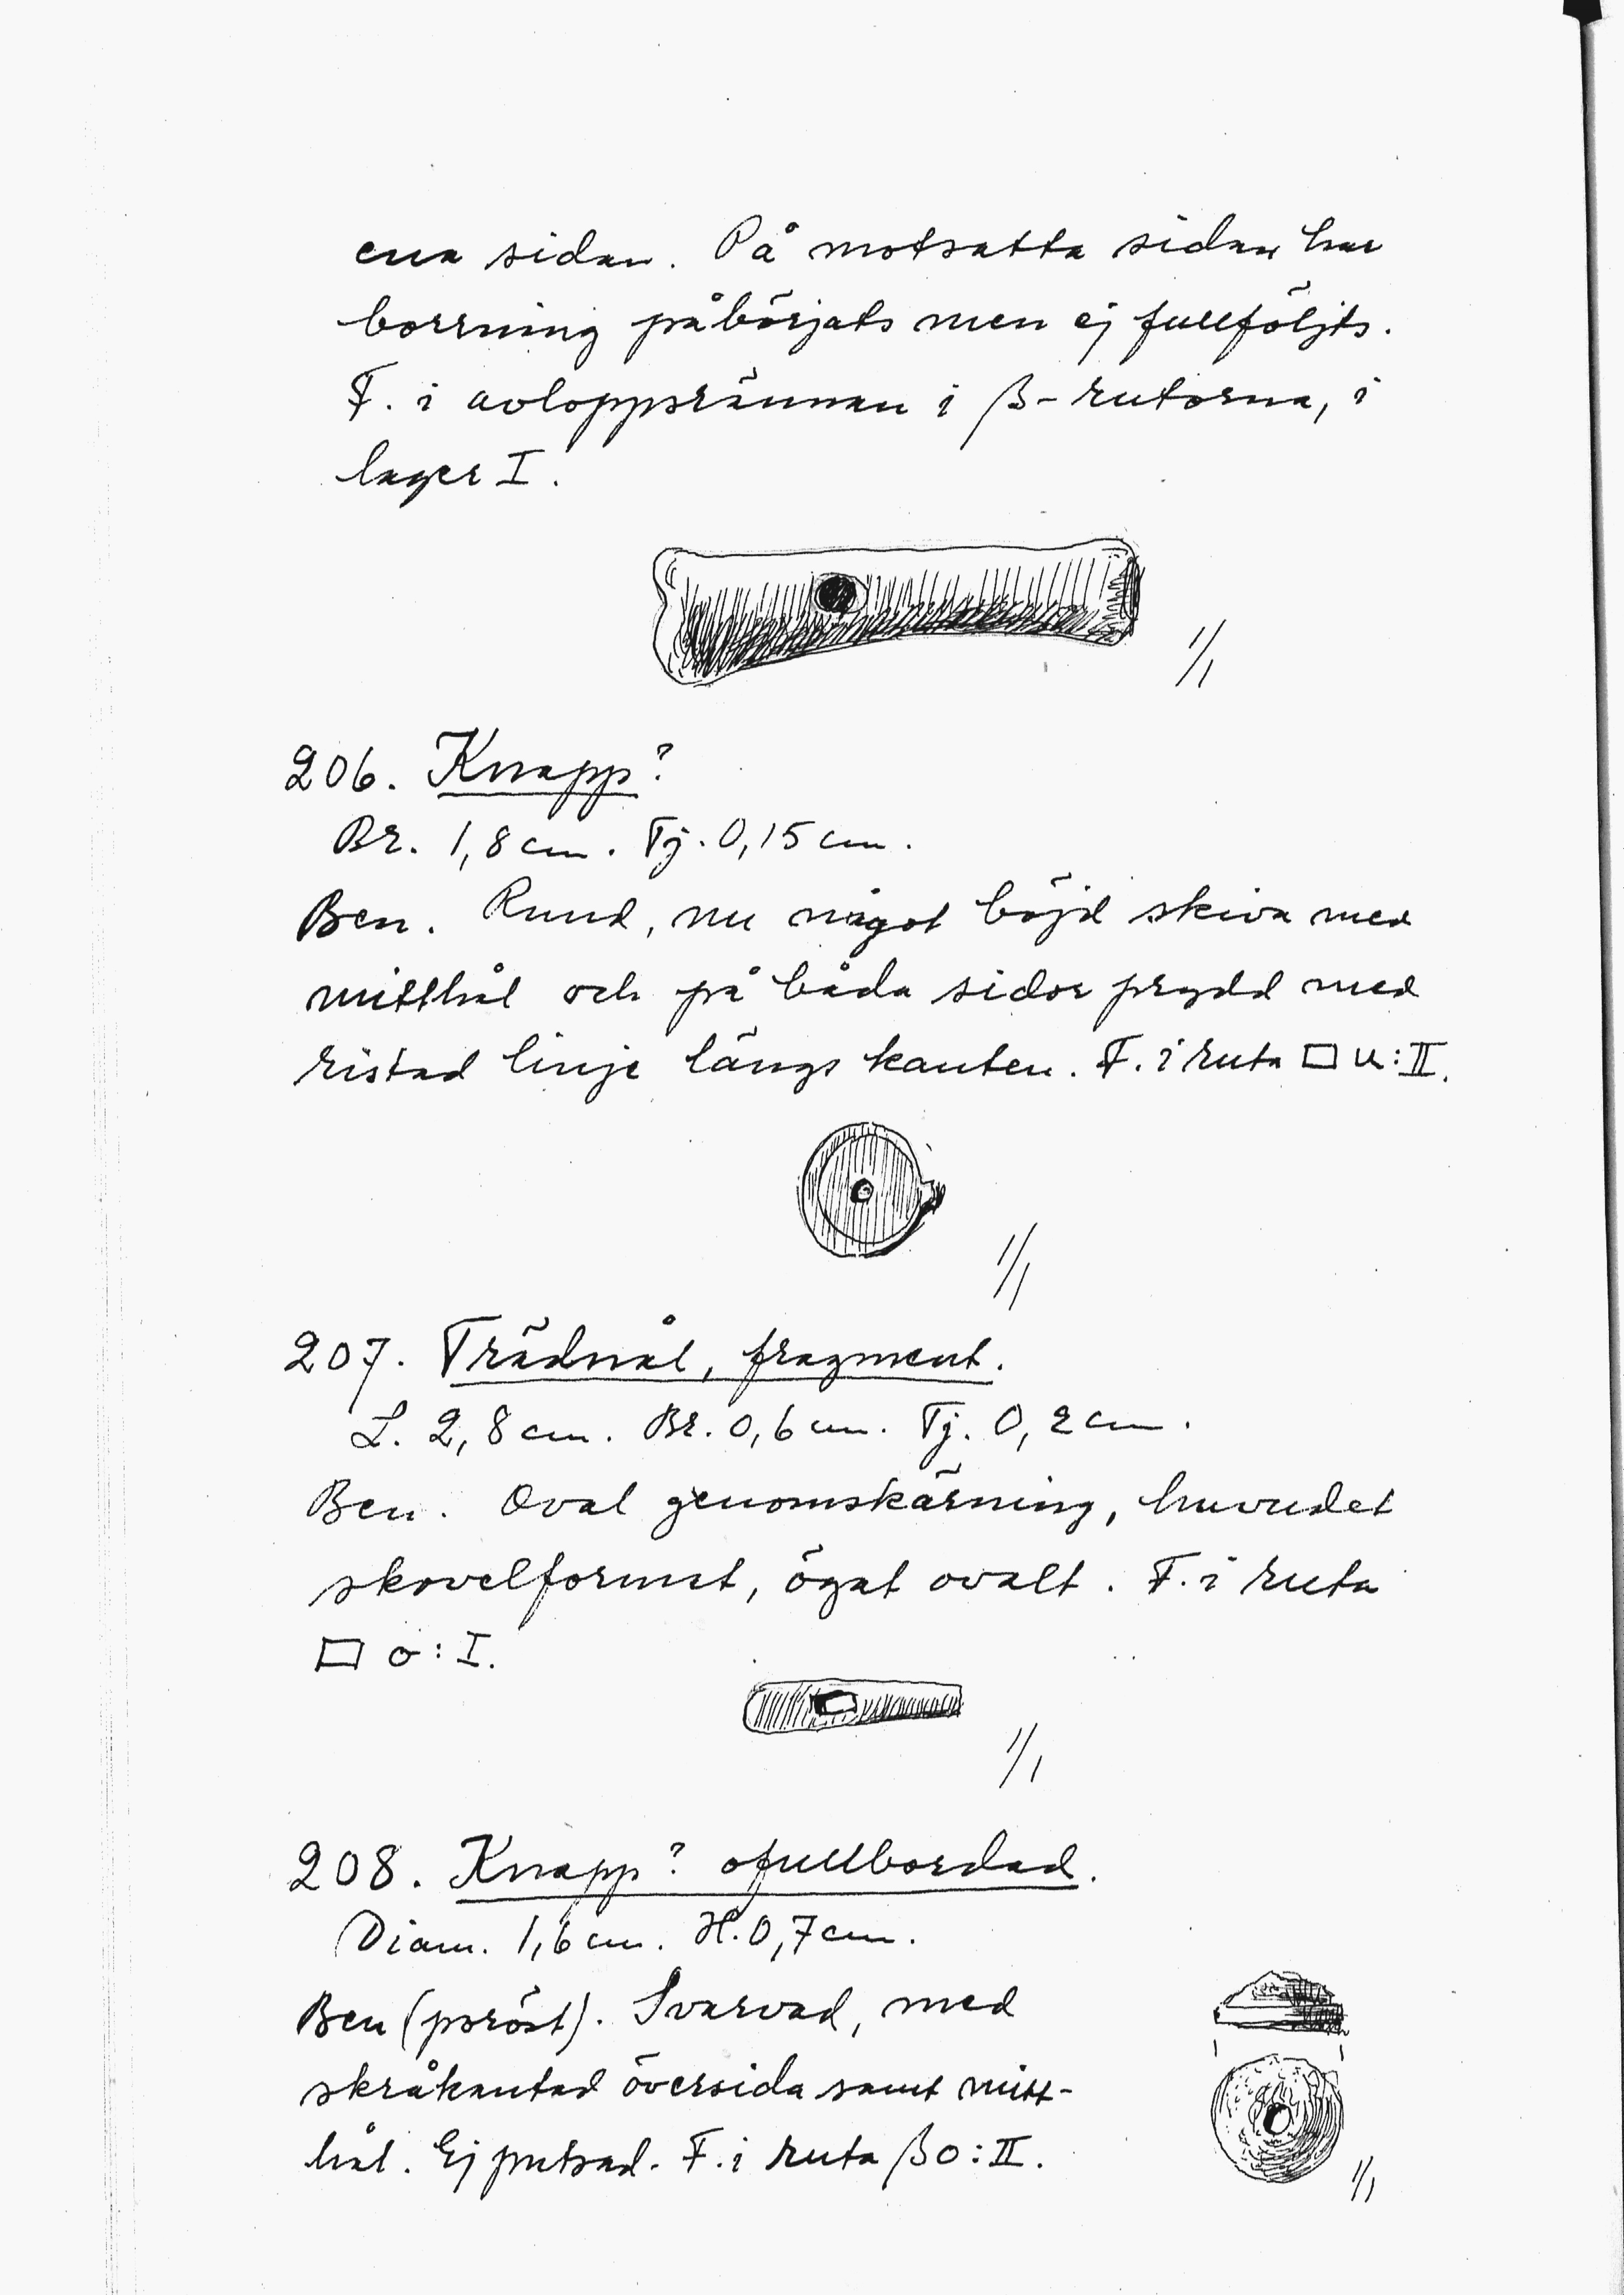 ena sidan. På motsatta sidan har
borrning påbörjats men ej fullföljts.
F. i avloppsrännan i β-rutorna, i
lager I.
1/1
206. Knapp?
Br. 1,8 cm. Tj. 0,15 cm.
Ben. Rund, nu något böjd skiva med
mitthål och på båda sidor prydd med
ristad linje längs kanten. F. i ruta □ u:II.
1/1
207. Trädnål, fragment.
L. 2,8 cm. Br. 0,6 cm. Tj. 0,2 cm.
Ben. Oval genomskärning, huvudet
skovelformat, ögat ovalt. F. i ruta
□ o:I.
1/1
208. Knapp? ofullbordad.
Diam. 1,6 cm. H. 0,7 cm.
Ben (poröst). Svarvad, med
skråkantad översida samt mitt-
hål. Ej putsad. F. i ruta βo:II.
1/1